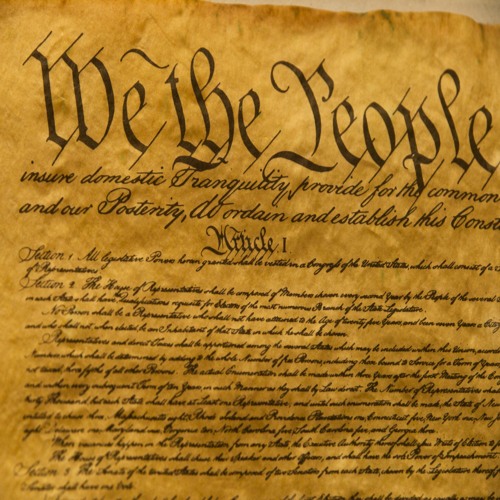 We the People
insure domestic Tranquility, provide for the common
and our Posterity, do ordain and establish this Const
Article I
Section 1. All legislative Powers herein granted shall be vested in a Congress of the United States, which shall consist of a
of Representatives.
Section 2. The House of Representatives shall be composed of Members chosen every second Year by the People of the several
in each State shall have Qualifications requisite for Electors of the most numerous Branch of the State Legislature.
No Person shall be a Representative who shall not have attained to the Age of twenty five Years, and been seven Years a
and who shall not, when elected, be an Inhabitant of that State in which he shall be chosen.
Representatives and direct Taxes shall be apportioned among the several States which may be included within this Union,
Numbers, which shall be determined by adding to the whole Number of free Persons, including those bound to Service for a Term of Years,
not taxed, three fifths of all other Persons. The actual Enumeration shall be made within three Years after the first Meeting of the
and within every subsequent Term of ten Years, in such Manner as they shall by Law direct. The Number of Representatives
thirty Thousand, but each State shall have at Least one Representative; and until such enumeration shall be made, the State of
entitled to chuse three, Massachusetts eight, Rhode Island and Providence Plantations one, Connecticut five, New York six, New
eight, Delaware one, Maryland six, Virginia ten, North Carolina five, South Carolina five, and Georgia three.
When vacancies happen in the Representation from any State, the Executive Authority thereof shall issue Writs of Election to
The House of Representatives shall chuse their Speaker and other Officers; and shall have the sole Power of Impeachment.
Section 3. The Senate of the United States shall be composed of two Senators from each State, chosen by the Legislature thereof
Senator shall have one Vote.